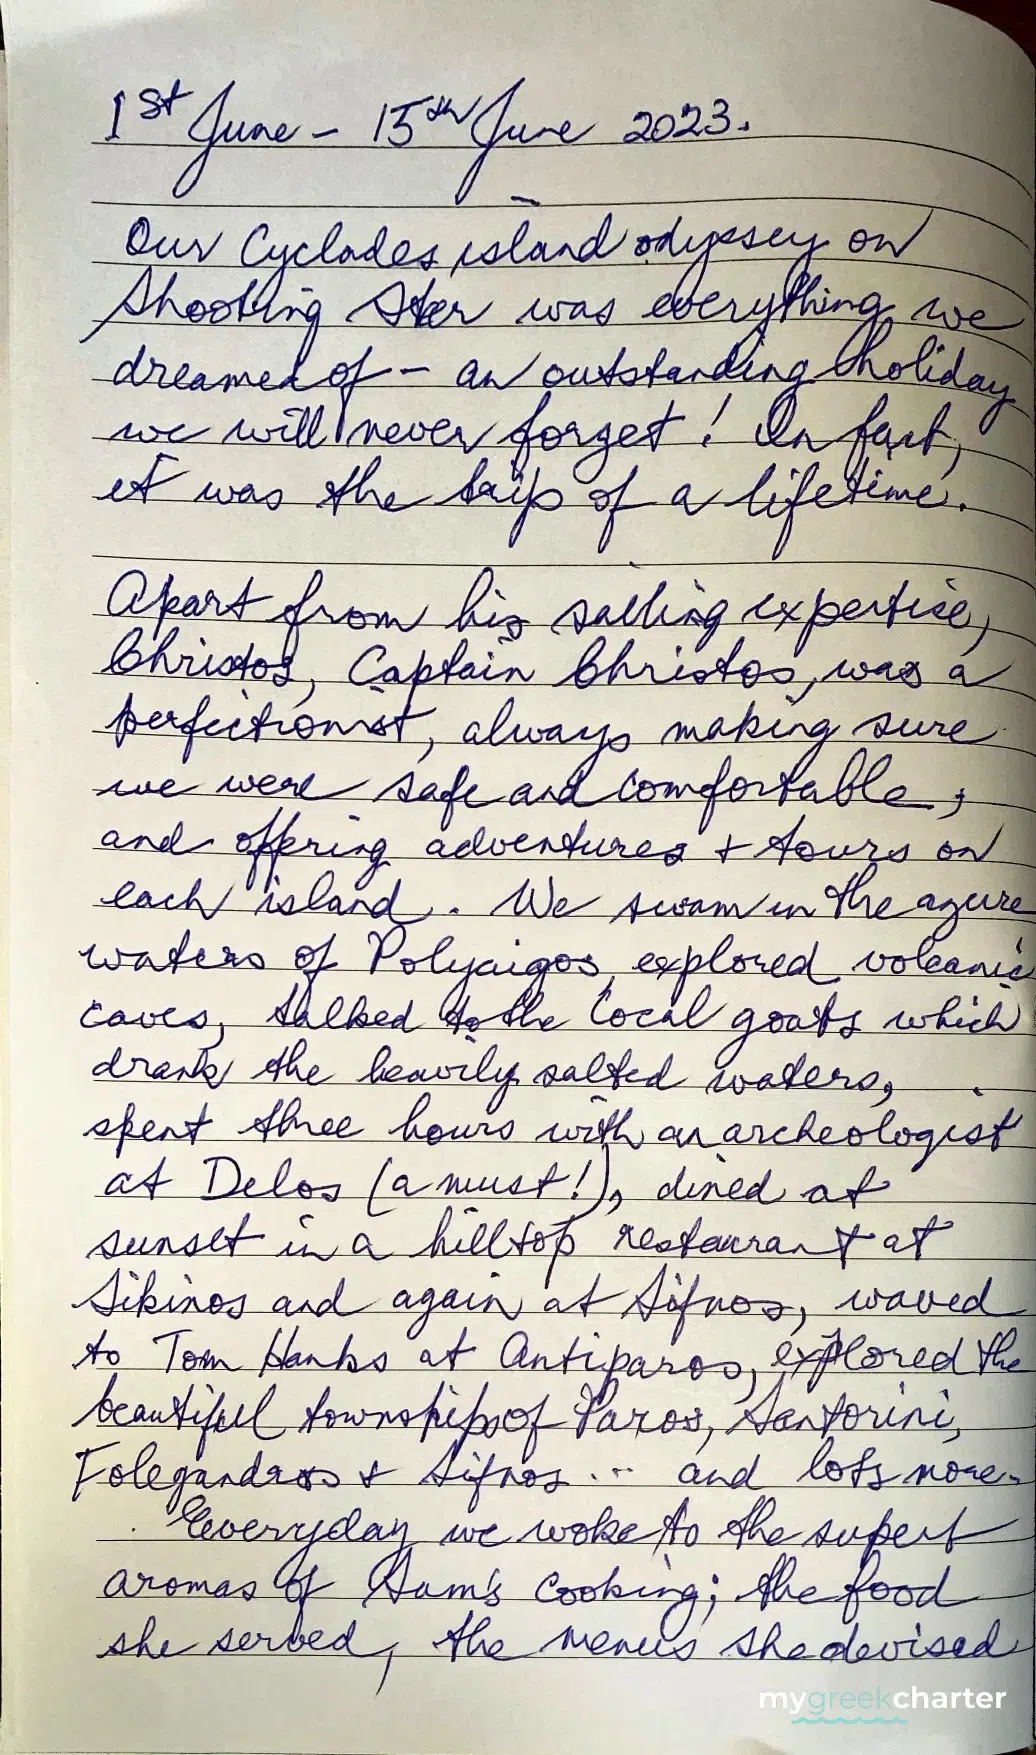 1st June - 15th June 2023.
Our Cyclades island odyssey on
Shooting Star was everything we
dreamed of - an outstanding holiday
we will never forget! In fact,
it was the trip of a lifetime.
Apart from his sailing expertise,
Christos, Captain Christos, was a
perfectionist, always making sure
we were safe and comfortable,
and offering adventures + tours on
each island. We swam in the azure
waters of Polyaigos, explored volcanic
caves, talked to the local goats which
drank the heavily salted waters,
spent three hours with an archeologist
at Delos (a must!), dined at
sunset in a hilltop restaurant at
Sikinos and again at Sifnos, waved
to Tom Hanks at Antiparos, explored the
beautiful townships of Paros, Santorini,
Folegandros + Sifnos ... and lots more.
Everyday we woke to the superb
aromas of Sam's cooking; the food
she served, the menus she devised
mygreekcharter